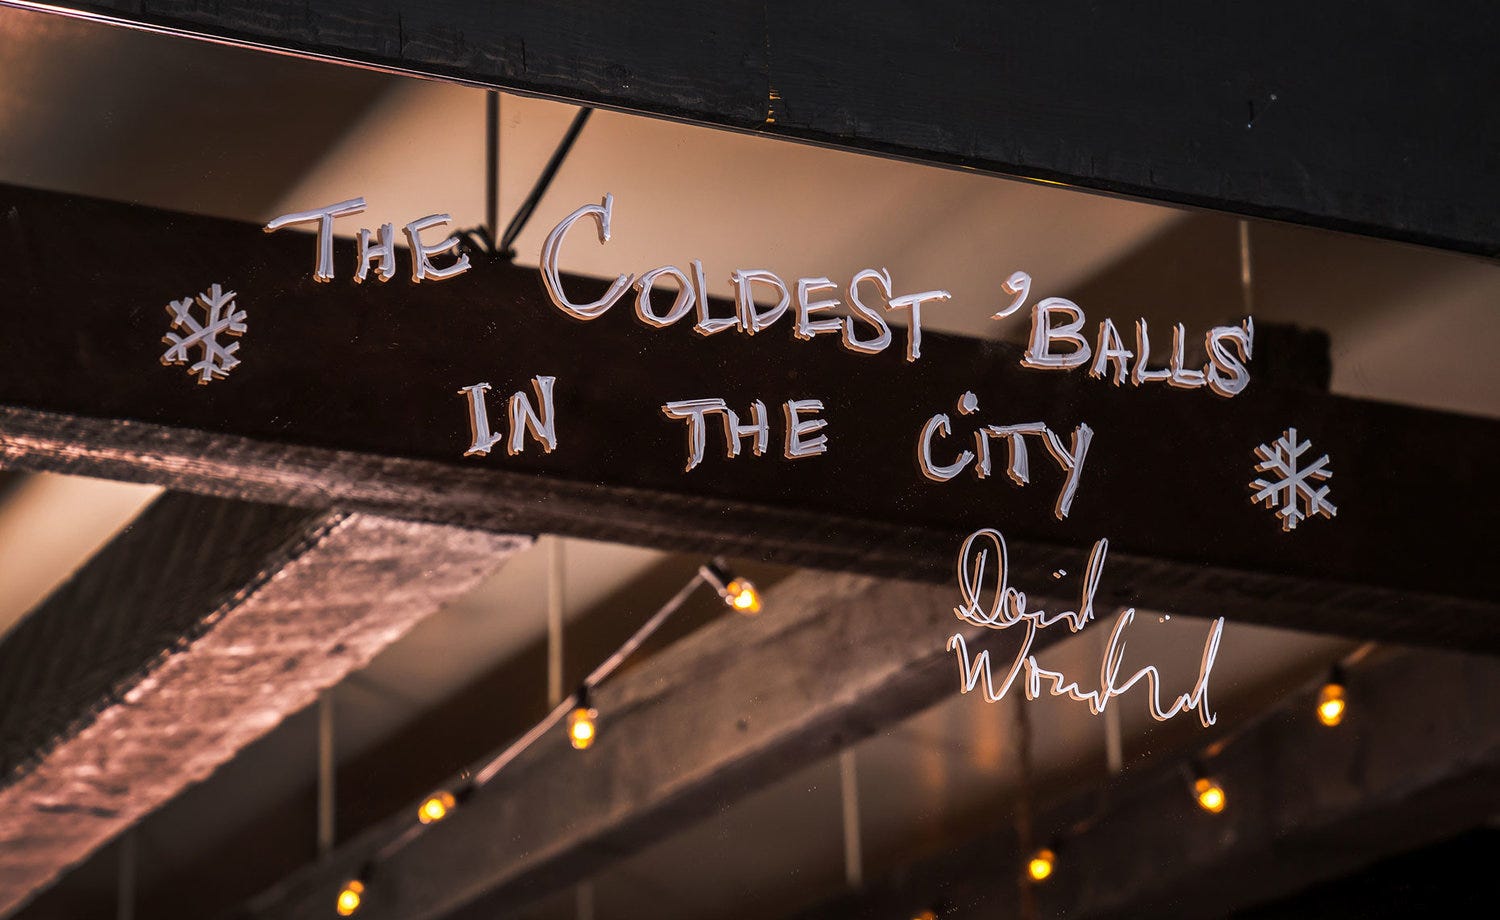 THE COLDEST 'BALLS'
IN THE CiTY
David
Wondrich